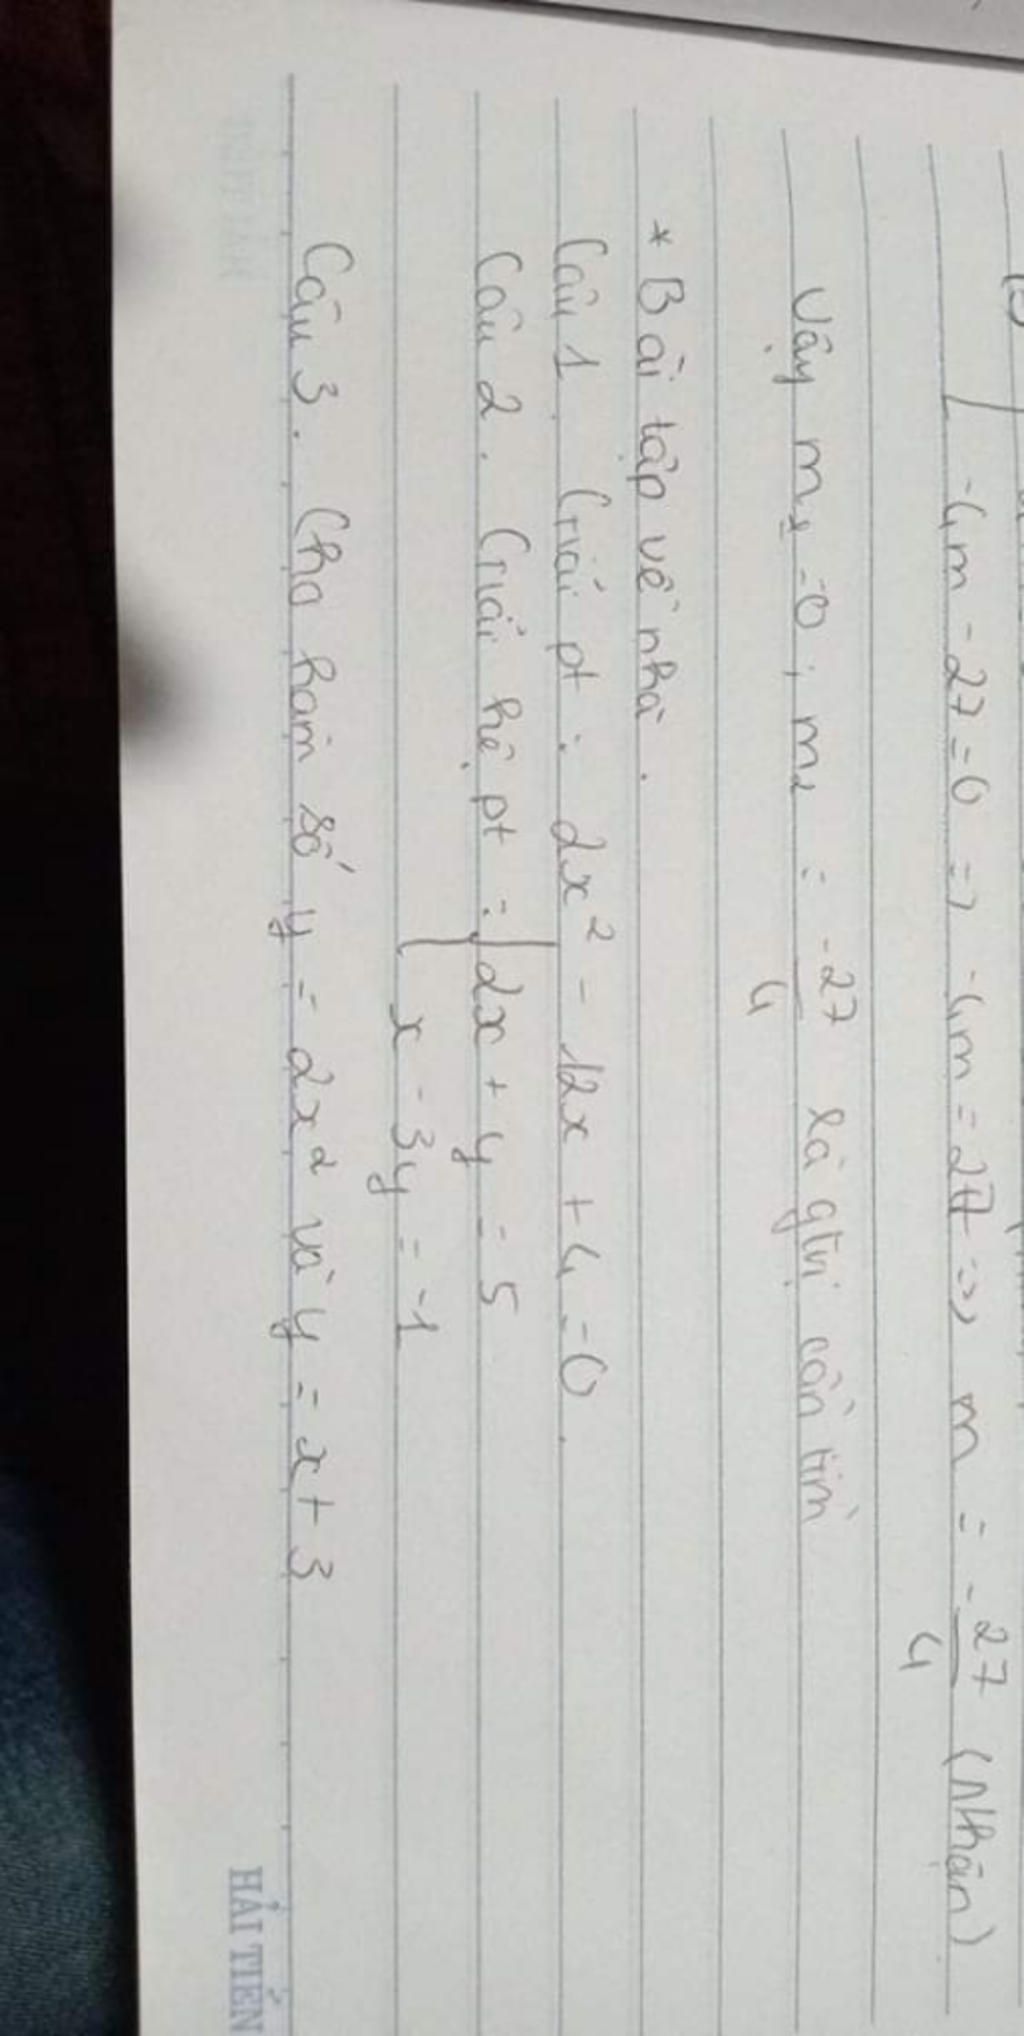 -4m - 27 = 0 => -4m = 27 => m = -27/4 (nhận)
Vậy m₁ = 0 ; m₂ = -27/4 là gtrị cần tìm
* Bài tập về nhà .
Câu 1 . Giải pt : 2x² - 12x + 4 = 0 .
Câu 2 . Giải hệ pt : { 2x + y = 5
x - 3y = -1
Câu 3 . Cho hàm số y = 2x² và y = x + 3
HẢI TIẾN